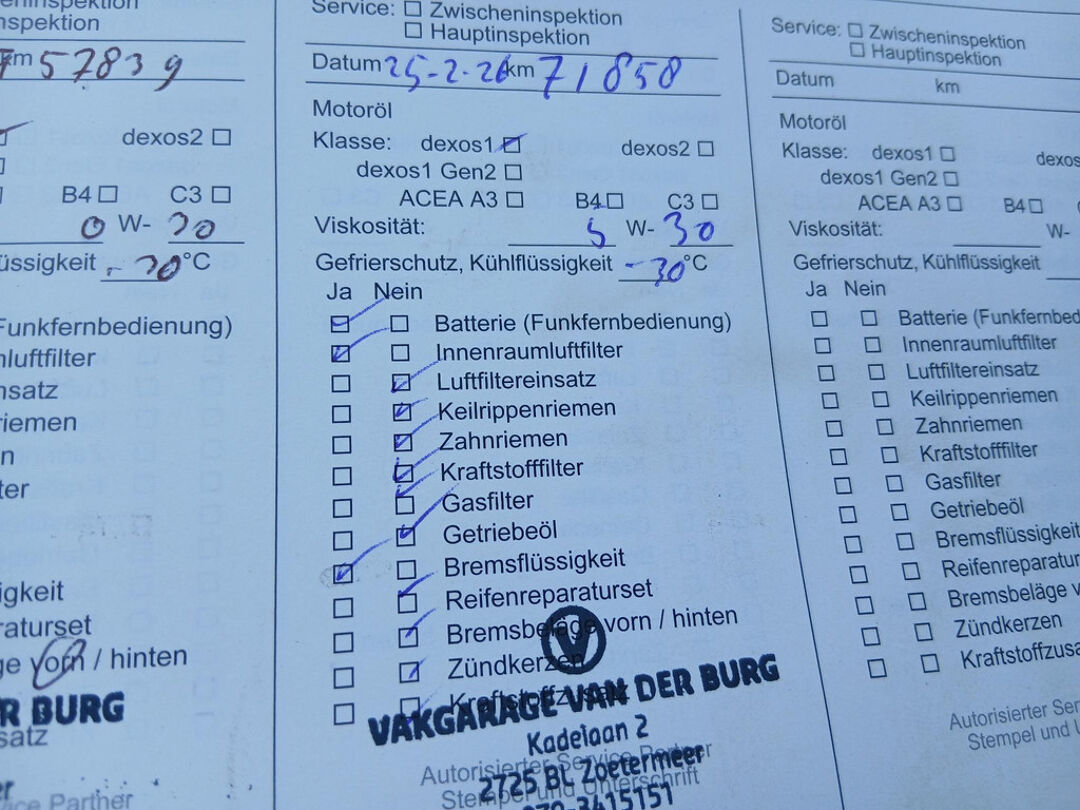 nspektion
km 57839
dexos2
B4 C3
0 W- 30
üssigkeit -30°C
Funkfernbedienung)
nluftfilter
nsatz
riemen
n
ter
igkeit
raturset
ge vorn / hinten
R BURG
satz
Partner
Service: Zwischeninspektion
Hauptinspektion
Datum 25-2-26 km 71858
Motoröl
Klasse: dexos1 dexos2
dexos1 Gen2
ACEA A3 B4 C3
Viskosität: 5 W- 30
Gefrierschutz, Kühlflüssigkeit -30°C
Ja Nein
Batterie (Funkfernbedienung)
Innenraumluftfilter
Luftfiltereinsatz
Keilrippenriemen
Zahnriemen
Kraftstofffilter
Gasfilter
Getriebeöl
Bremsflüssigkeit
Reifenreparaturset
Bremsbeläge vorn / hinten
Zündkerzen
Kraftstoffzusatz
VAKGARAGE VAN DER BURG
Kadelaan 2
Autorisierter Service Partner
2725 BL Zoetermeer
Stempel und Unterschrift
079-3415151
Service: Zwischeninspektion
Hauptinspektion
Datum km
Motoröl
Klasse: dexos1 dexos
dexos1 Gen2
ACEA A3 B4
Viskosität: W-
Gefrierschutz, Kühlflüssigkeit
Ja Nein
Batterie (Funkfernbed
Innenraumluftfilter
Luftfiltereinsatz
Keilrippenriemen
Zahnriemen
Kraftstofffilter
Gasfilter
Getriebeöl
Bremsflüssigkeit
Reifenreparatur
Bremsbeläge v
Zündkerzen
Kraftstoffzusa
Autorisierter Ser
Stempel und U